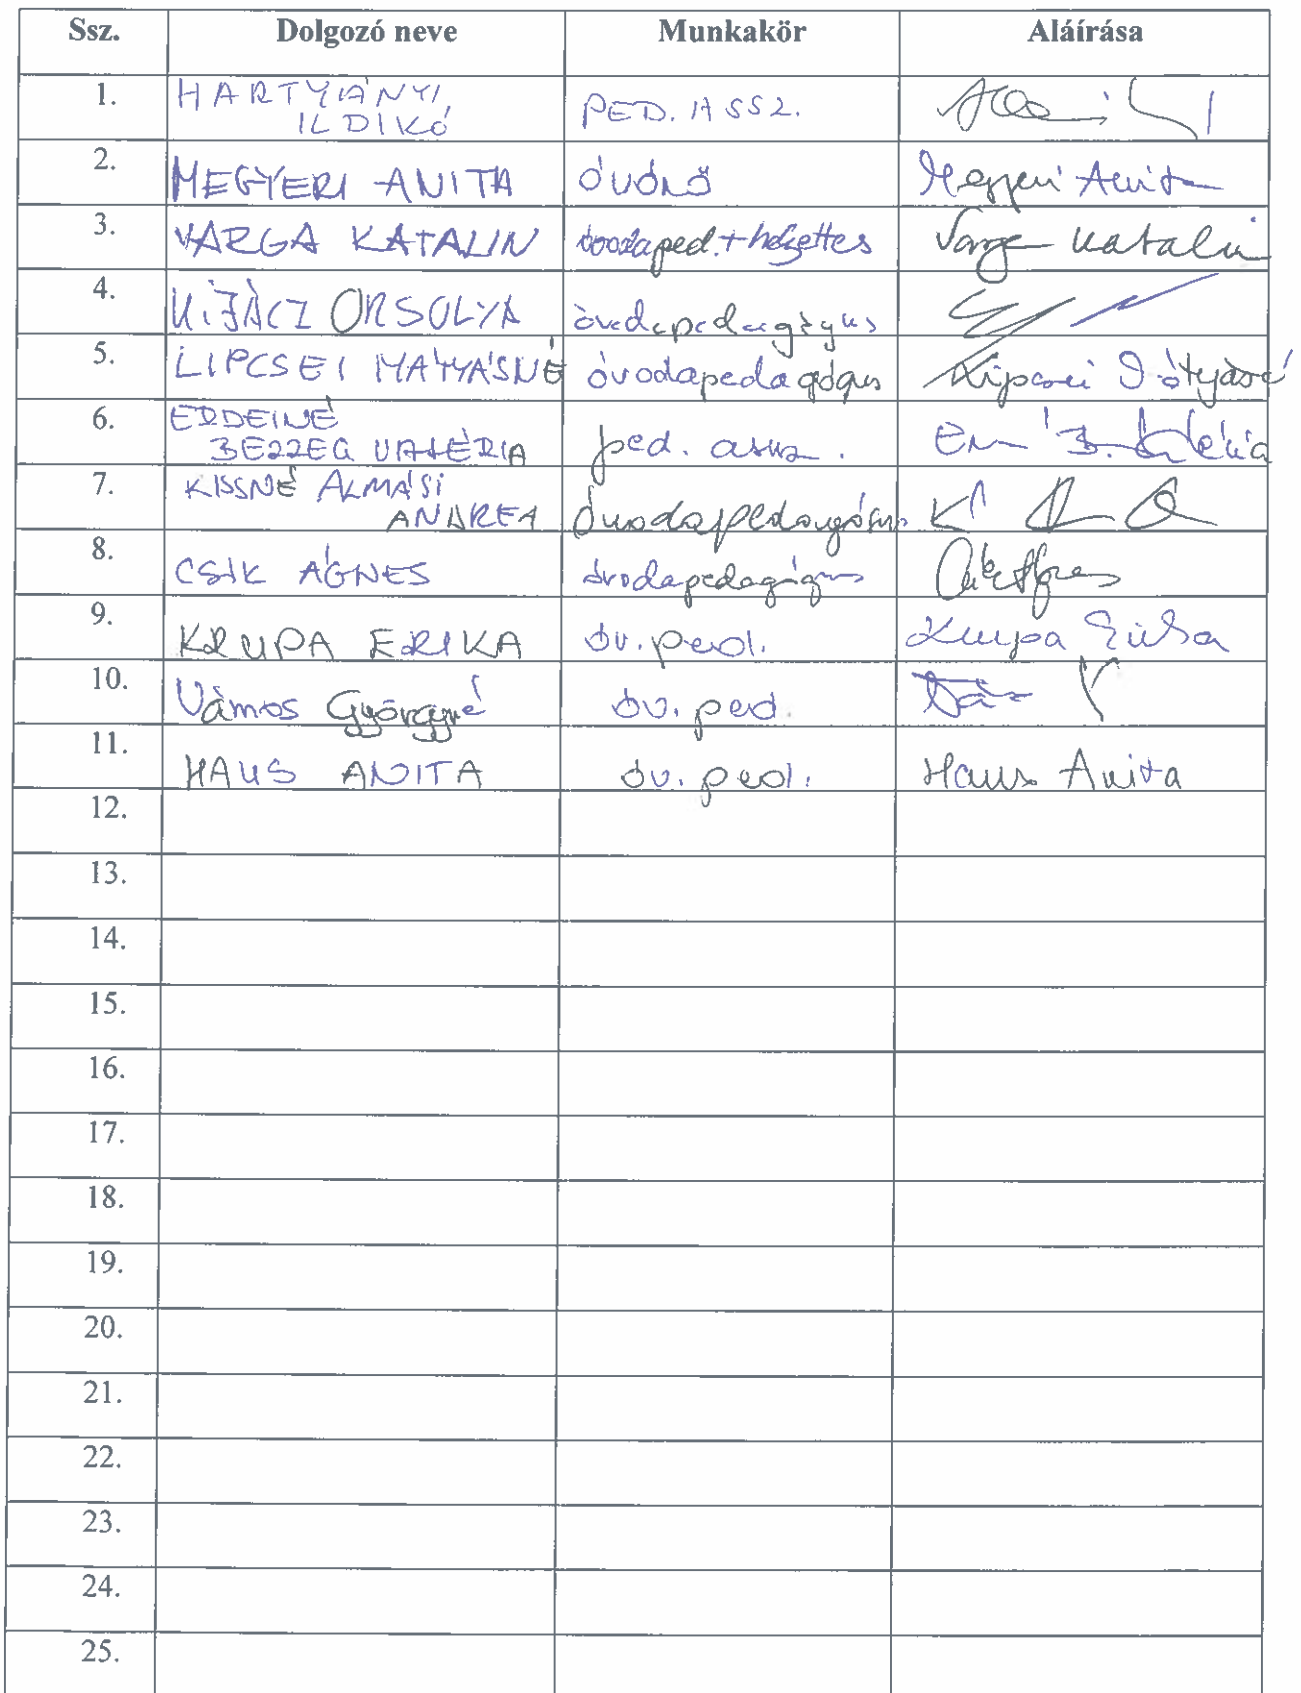 Ssz. Dolgozó neve Munkakör Aláírása
1. HARTYÁNYI ILDIKÓ PED. ASSZ.
2. MEGYERI ANITA ÓVÓNŐ Megyeri Anita
3. VARGA KATALIN óvodaped.+helyettes Varga Katalin
4. ORSOLYA óvodapedagógus
5. LIPCSEI MÁTYÁSNÉ óvodapedagógus Lipcsei Mátyásné
6. ERDEINÉ BEZZEG VALÉRIA ped. assz.
7. KISSNÉ ALMÁSI ANDREA óvodapedagógus
8. CSIK ÁGNES óvodapedagógus
9. KRUPA ERIKA óv. ped. Krupa Erika
10. Vámos Györgyné óv. ped.
11. HAUS ANITA óv. ped. Haus Anita
12.
13.
14.
15.
16.
17.
18.
19.
20.
21.
22.
23.
24.
25.